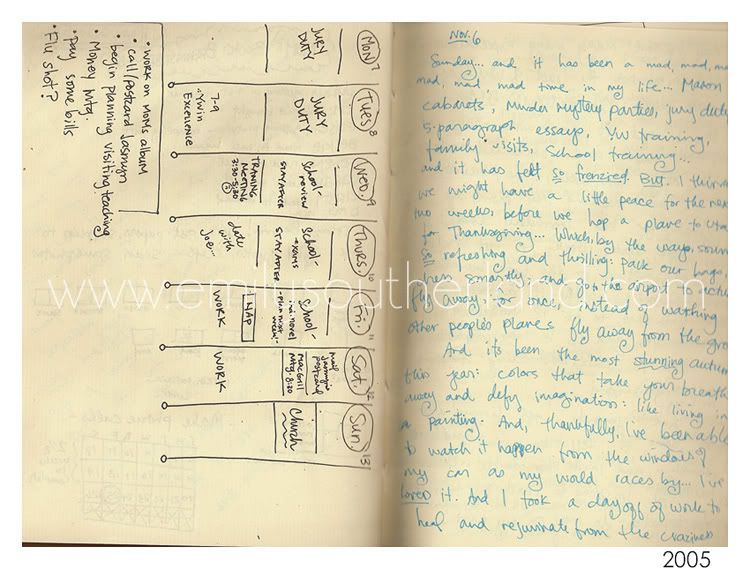 • WORK ON MOM'S ALBUM
• call/postcard Jasmyn
• begin planning visiting teaching
• Money Mtg.
• Pay some bills
• Flu shot?
MON 7
JURY
DUTY
Tues 8
JURY
DUTY
7-9
EXCELLENCE
Wed. 9
School-
review
STAY AFTER
TRAINING
MEETING
3:30-5:30
Thurs. 10
School-
-exams
STAY AFTER
date
with
Joe...
Fri. 11
School-
-novel
-plan next
week!
NAP
WORK
Sat. 12
mail
Jasmyn's
postcard
MacGrill
Mtg. 8:30
WORK
Sun. 13
Church
Nov. 6
Sunday... and it has been a mad, mad, mad
mad, mad, mad time in my life... Mason
cabarets, Murder Mystery parties, jury duty
5-paragraph essays, YW training,
family visits, School training...
and it has felt so frenzied. But I think
we might have a little peace for the next
two weeks, before we hop a plane to Utah
for Thanksgiving... Which, by the way, sounds
refreshing and thrilling: pack our bags,
and go to the airport to actually
fly away: for once, instead of watching
other people's planes fly away from the
And its been the most stunning autumn
this year: colors that take your breath
away and defy imagination: like living in
a painting. And, thankfully, I've been able
to watch it happen from the windows of
my car as my world races by... I've
loved it. And I took a day off of work to
heal and rejuvinate from the craziness
www.emilysoutherland.com
2005